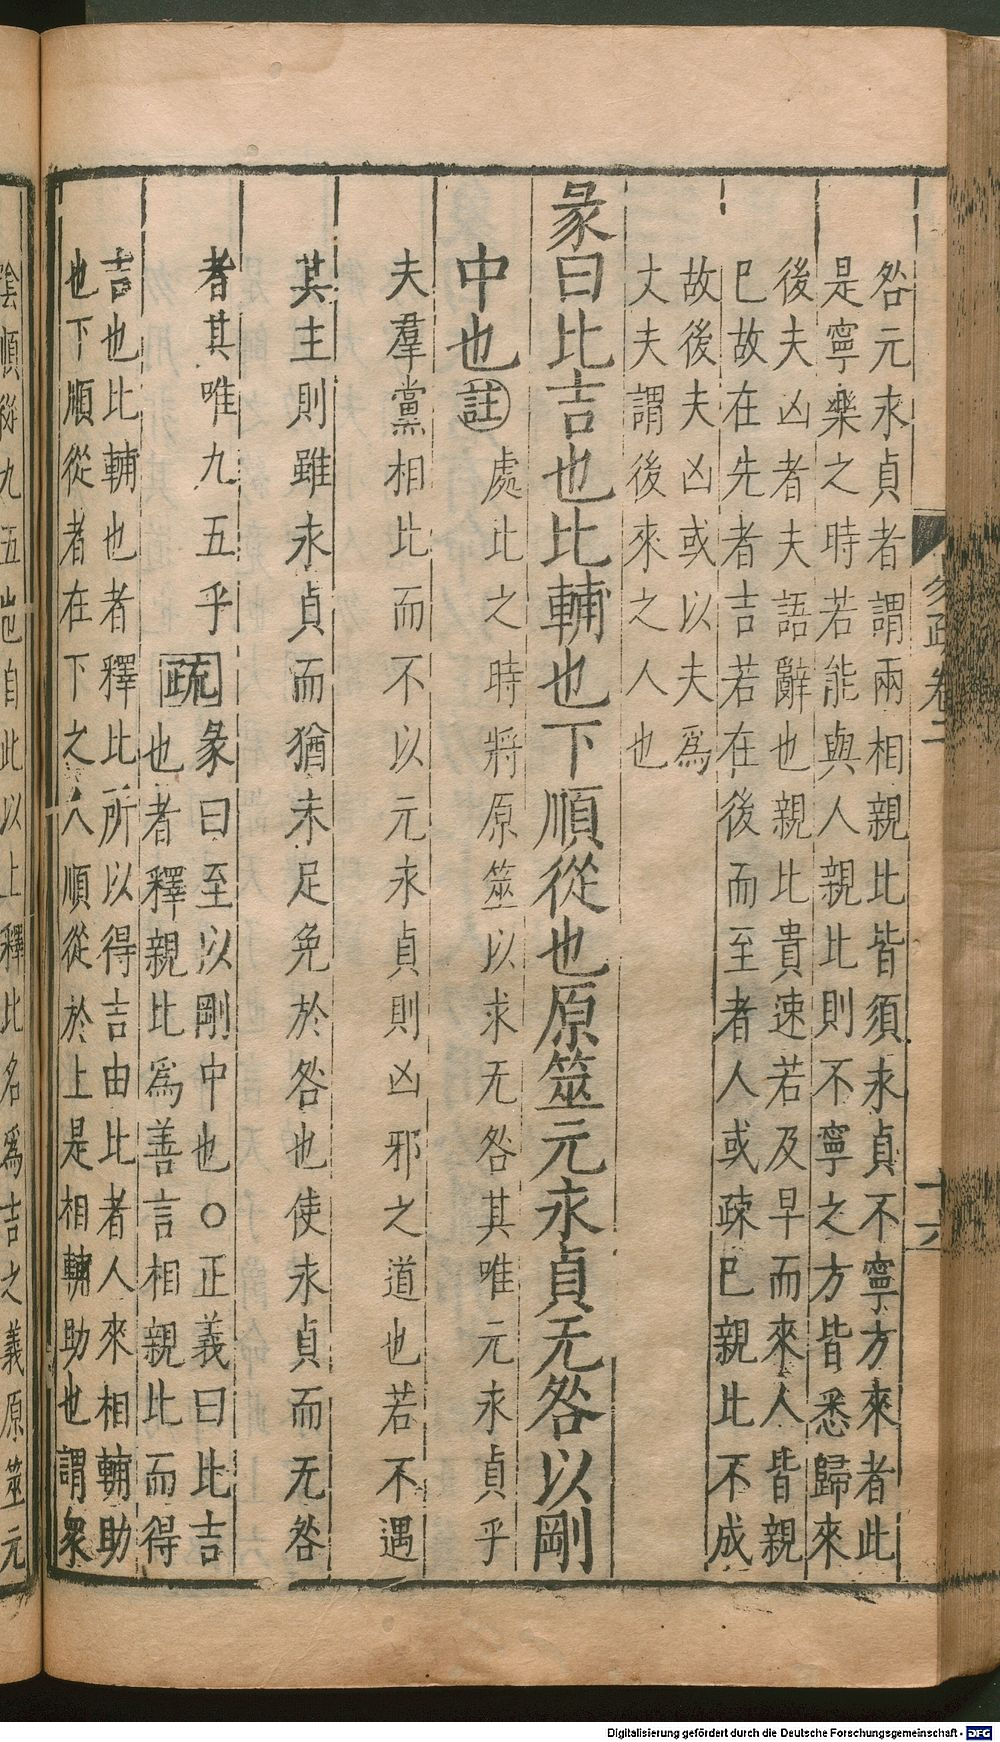 咎元永貞者謂兩相親比皆須永貞不寧方來者此
是寧樂之時若能與人親比則不寧之方皆悉歸來
後夫凶者夫語辭也親比貴速若及早而來人皆親
巳故在先者吉若在後而至者人或疎巳親比不成
故後夫凶或以夫爲
丈夫謂後來之人也
彖曰比吉也比輔也下順從也原筮元永貞无咎以剛
中也註處比之時將原筮以求无咎其唯元永貞乎
夫羣黨相比而不以元永貞則凶邪之道也若不遇
其主則雖永貞而猶未足免於咎也使永貞而无咎
者其唯九五乎疏彖曰至以剛中也○正義曰比吉
也者釋親比爲善言相親比而得
吉也比輔也者釋比所以得吉由比者人來相輔助
也下順從者在下之人順從於上是相輔助也謂衆
陰順從九五也自此以上釋比名爲吉之義原筮元
易疏卷二
十六
Digitalisierung gefördert durch die Deutsche Forschungsgemeinschaft - DFG